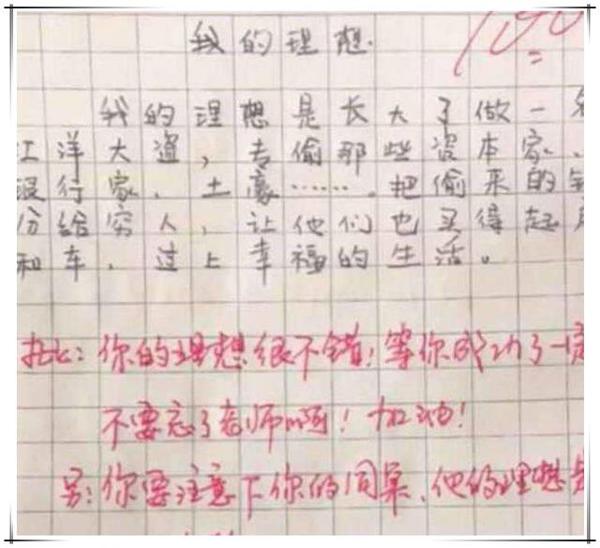 我的理想.
100
我的理想是长大了做一名
江洋大盗，专偷那些资本家、
银行家、土豪……. 把偷来的钱
分给穷人，让他们也买得起房
和车，过上幸福的生活。
批：你的理想很不错！等你成功了一定
不要忘了老师啊！加油！
另：你要注意下你的同桌、他的理想是